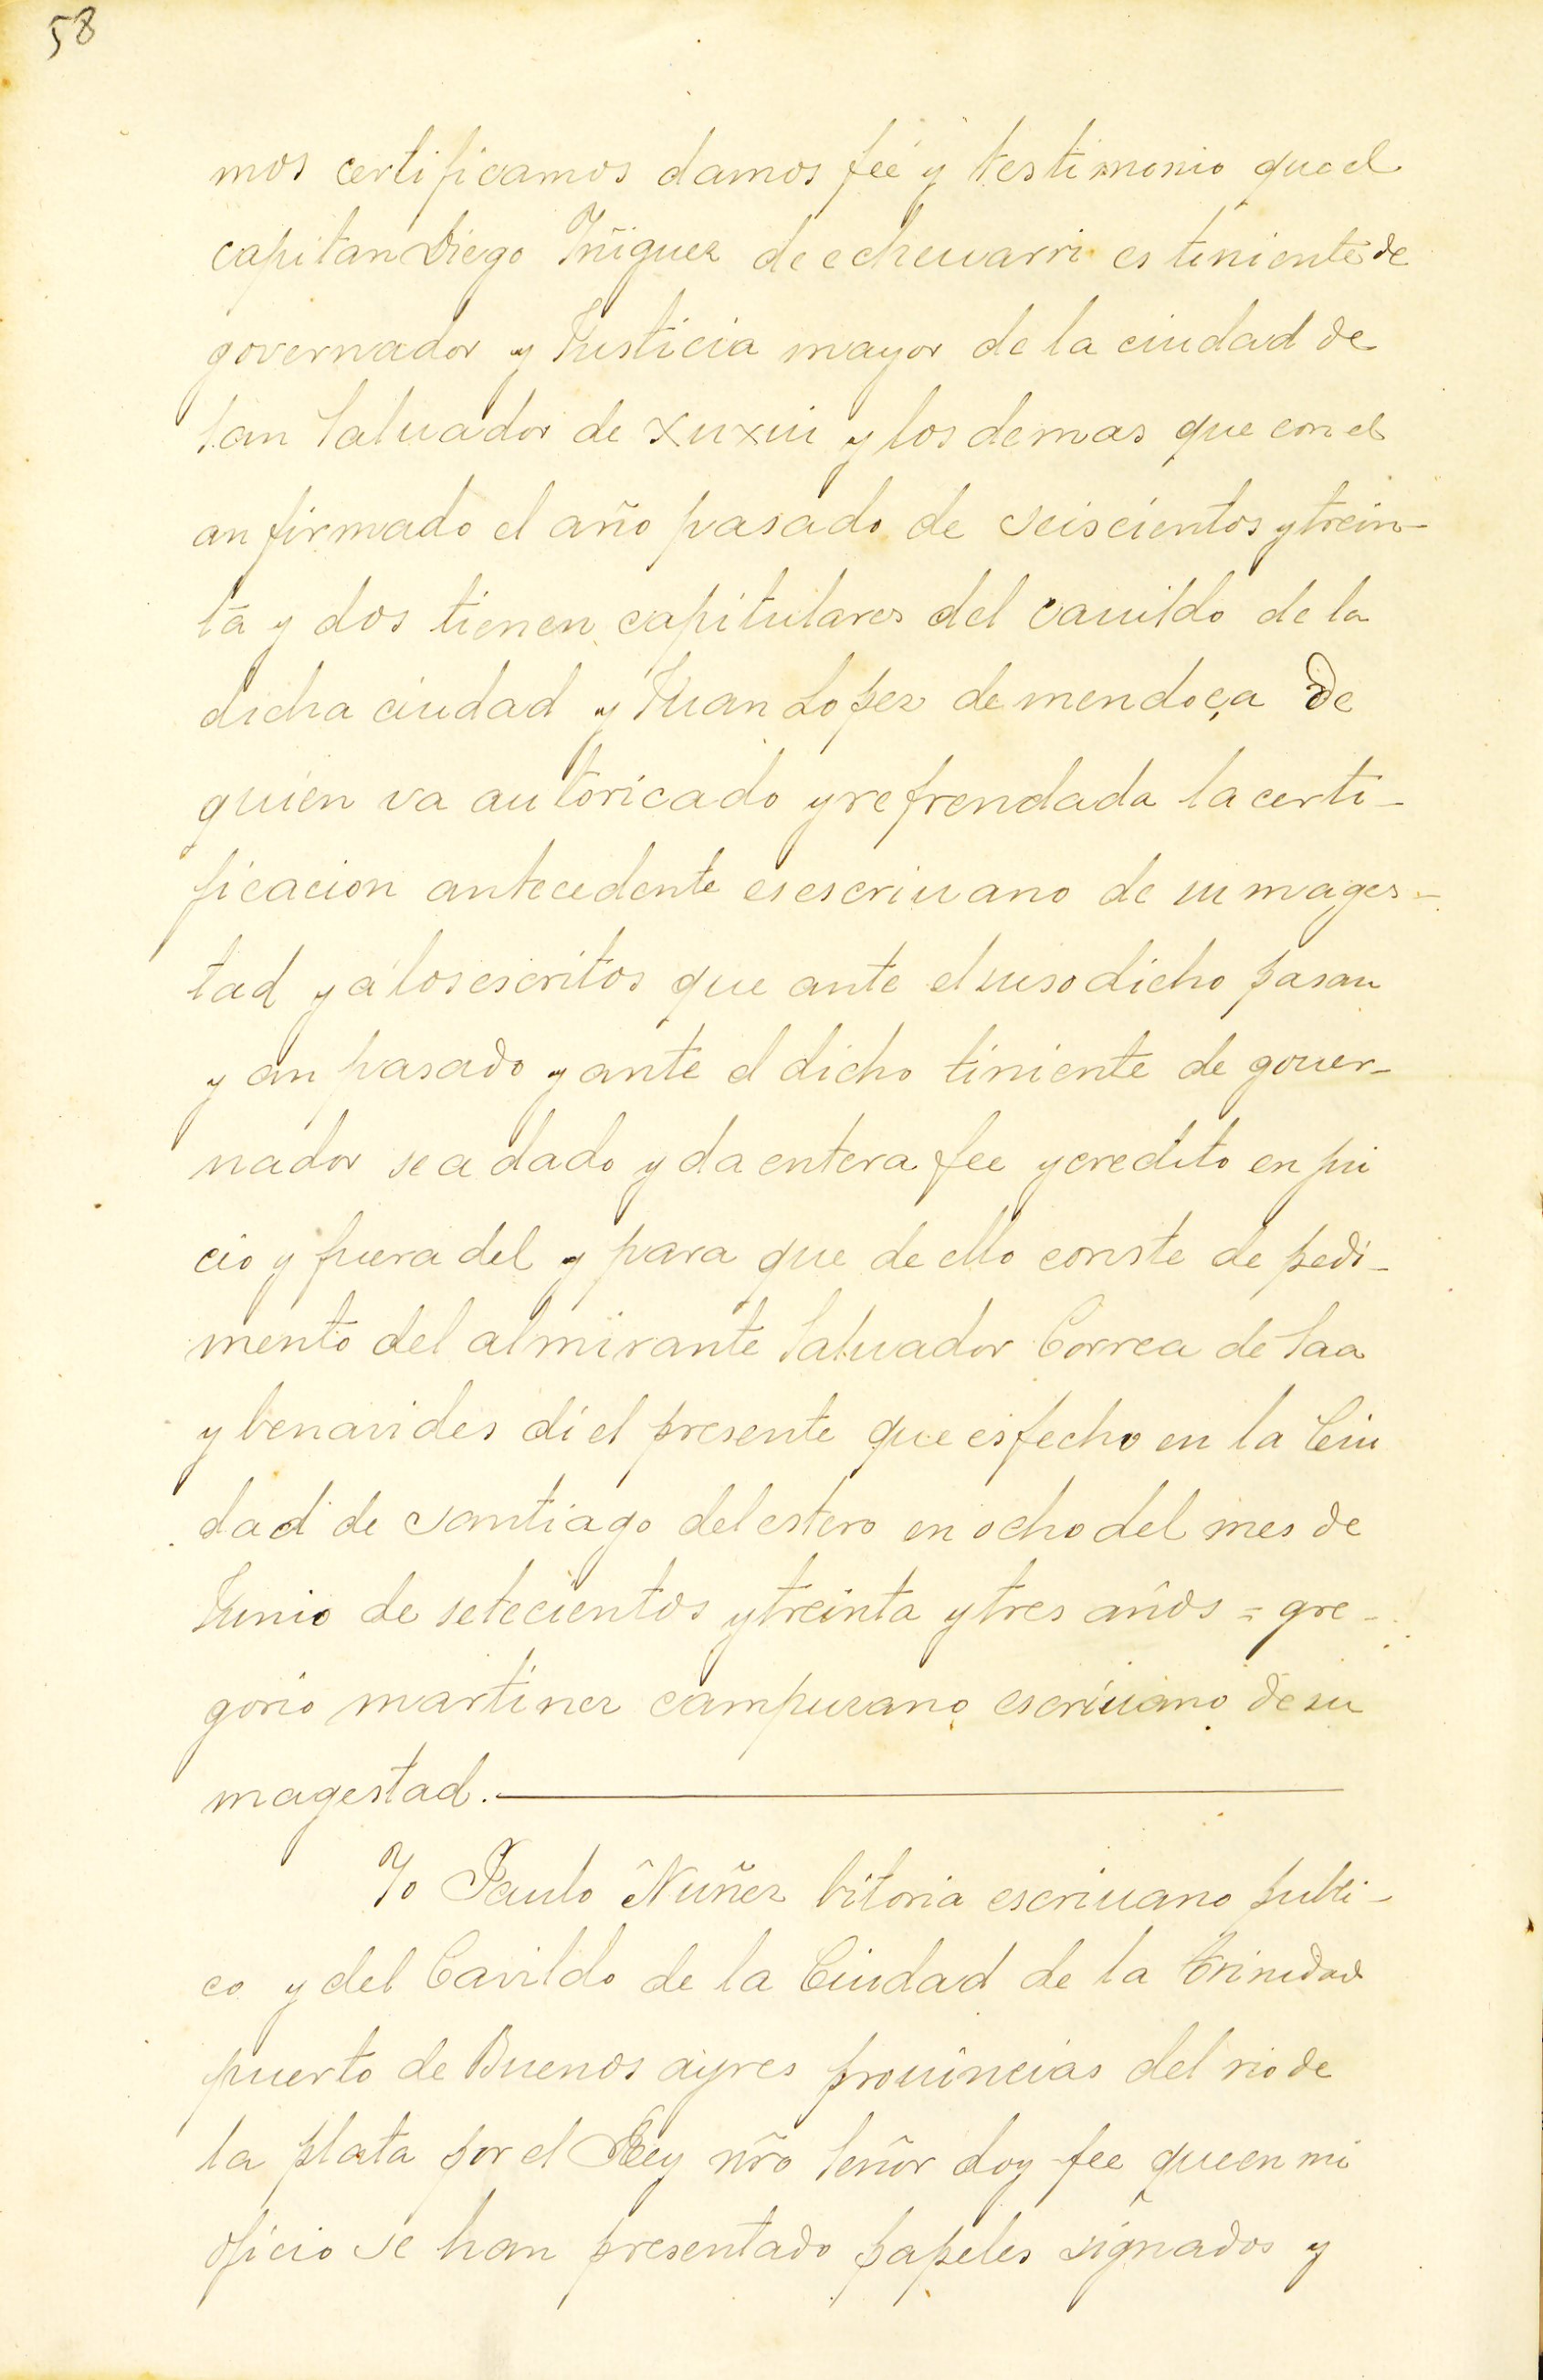 58
mos certificamos damos feé y testimonio que el
capitan Diego Yñiguez de echeuarri es tenientede
governador y Justicia mayor de la ciudad de
San Saluador de xuxui y los demas que con el
an firmado el año pasado de seiscientos y trein-
ta y dos tienen capitulares del cauildo de la
dicha ciudad y Juan Lopez de mendoça de
quien va autoricado y refrendada la certi-
ficacion antecedente es escriuano de su mages-
tad y a los escritos que ante el suso dicho pasan
y an pasado y ante el dicho tiniente de gouer-
nador se a dado y da entera fee y credito en jui
cio y fuera del y para que de ello conste de pedi-
mento del almirante Saluador Correa de Saa
y benavides di el presente que es fecho en la Ciu
dad de Santiago del estero en ocho del mes de
Junio de setecientos y treinta y tres años = gre-
gorio martinez campuzano escriuano de su
magestad.
Yo Paulo Nuñez bitoria escriuano publi-
co y del Cavildo de la Ciudad de la trinidad
puerto de Buenos ayres prouincias del rio de
la plata por el Rey nr̃o Señor doy fee que en mi
oficio se han presentado papeles signados y